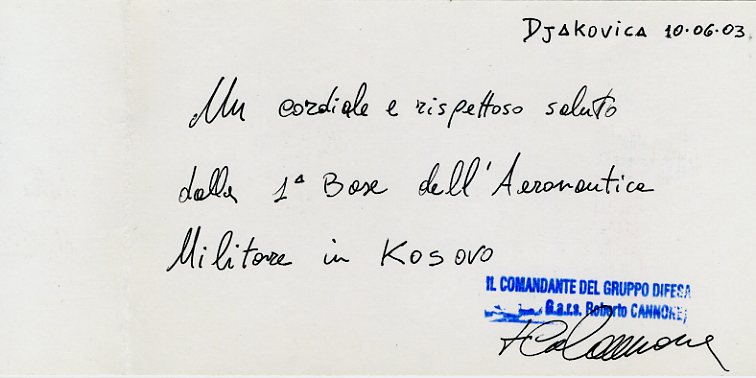 Djakovica 10.06.03
Un cordiale e rispettoso saluto
dalla 1ª Base dell'Aeronautica
Militare in Kosovo
IL COMANDANTE DEL GRUPPO DIFESA
G.a.r.s. Roberto CANNONE)